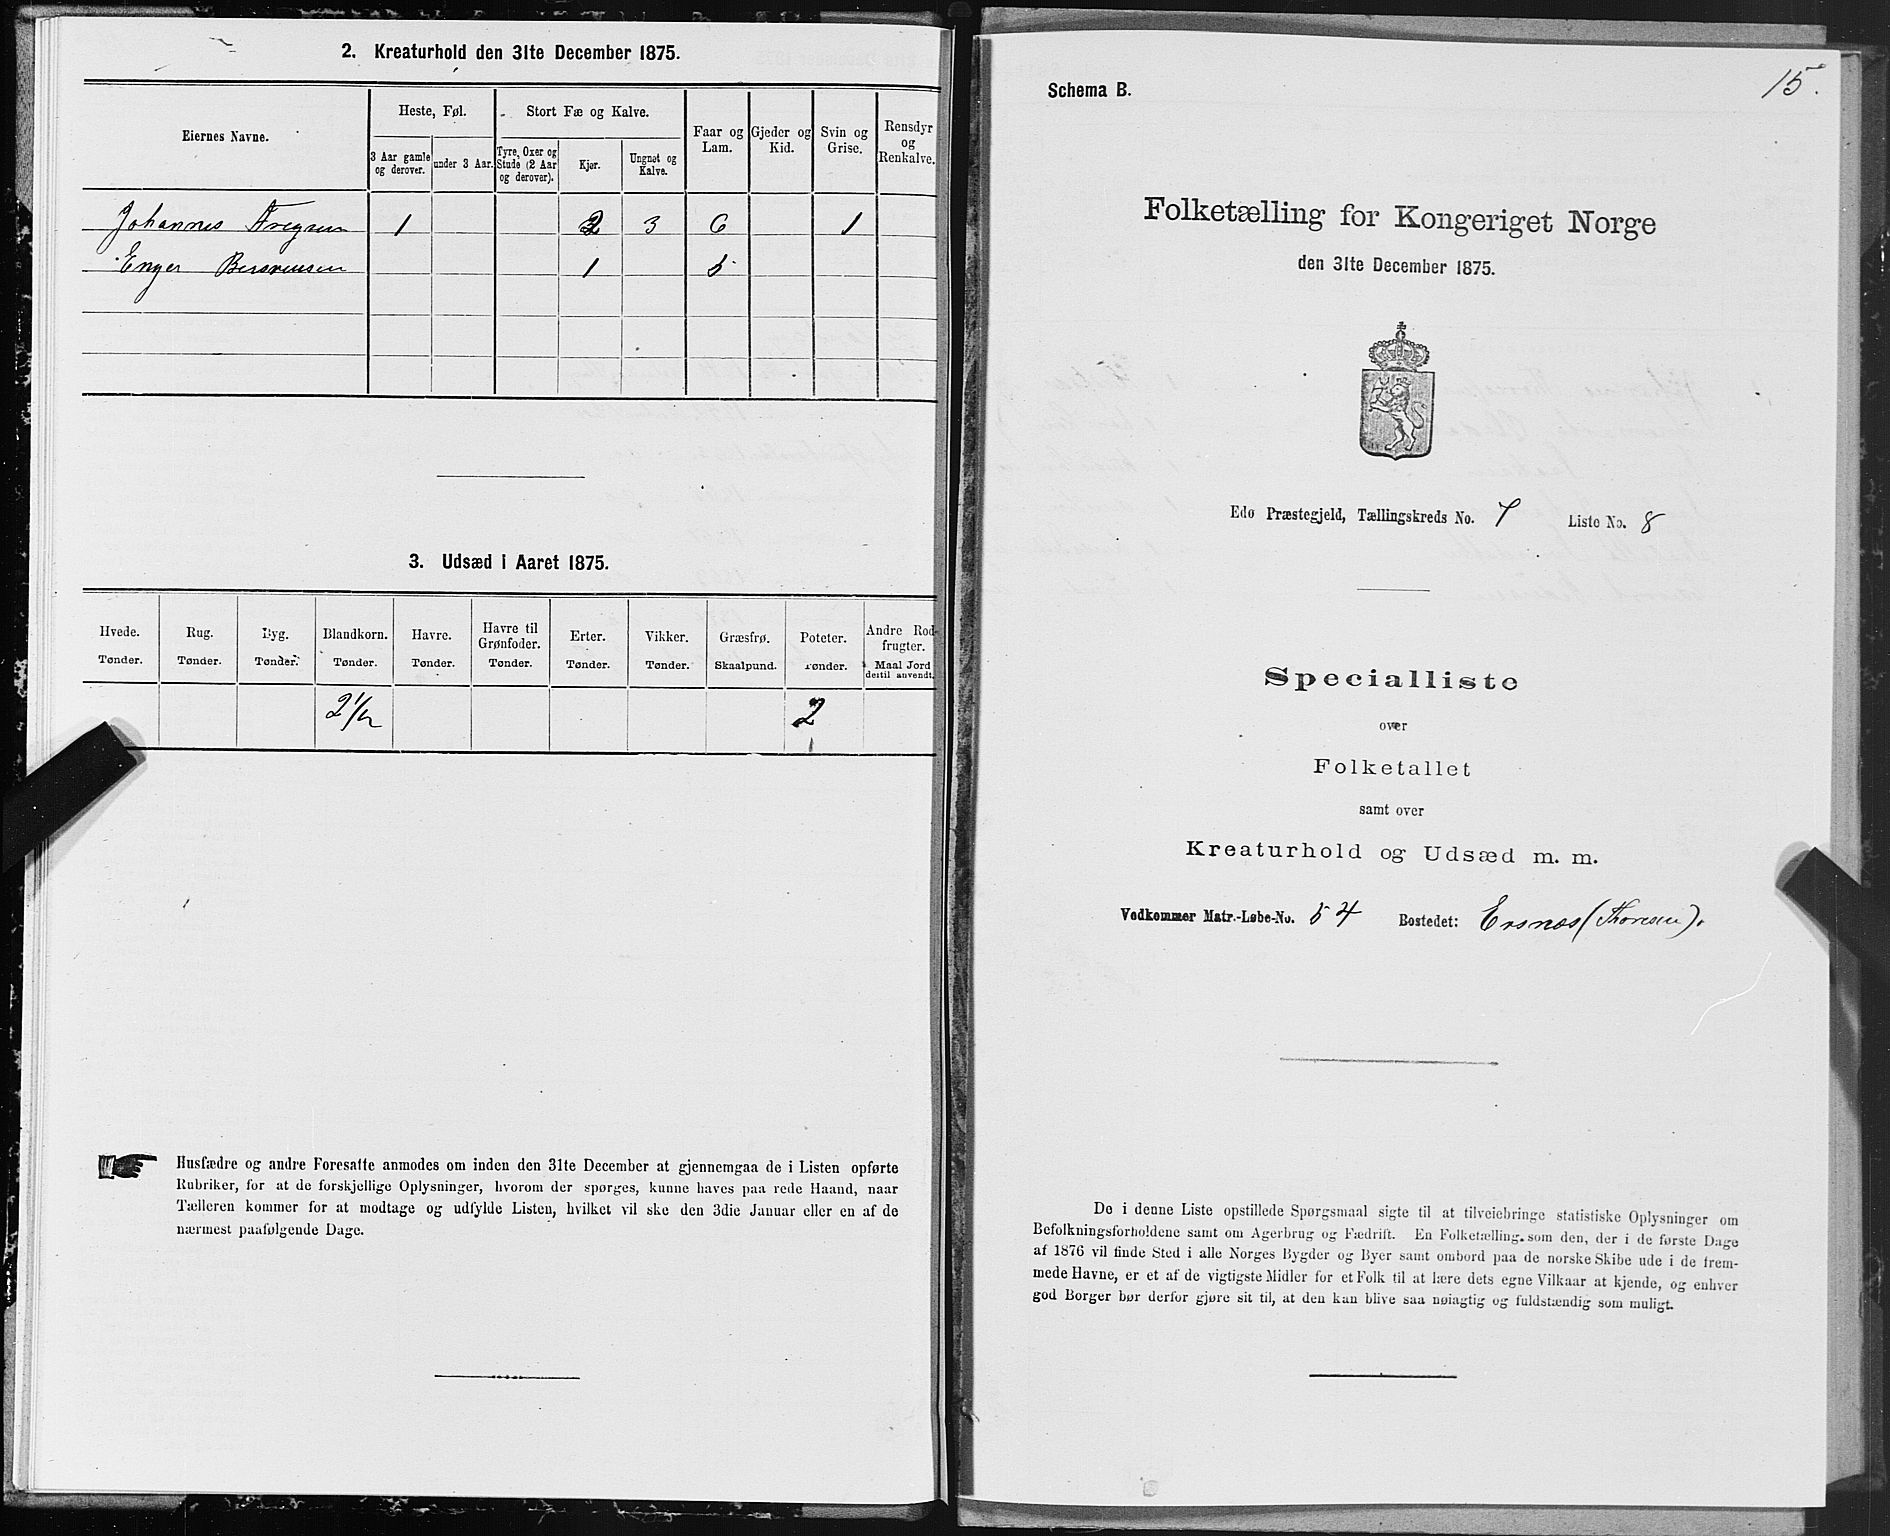 2. Kreaturhold den 31te December 1875.
Eiernes Navne.
Heste, Føl.
Stort Fæ og Kalve.
Faar og Lam.
Gjeder og Kid.
Svin og Grise.
Rensdyr og Renkalve.
3 Aar gamle og derover.
under 3 Aar.
Tyre, Oxer og Stude (2 Aar og derover).
Kjør.
Ungnøt og Kalve.
Johannes 1 2 3 6 1
Enger 1 5
3. Udsæd i Aaret 1875.
Hvede. Rug. Byg. Blandkorn. Havre. Havre til Grønfoder. Erter. Vikker. Græsfrø. Poteter. Andre Rodfrugter.
Tønder. Tønder. Tønder. Tønder. Tønder. Tønder. Tønder. Tønder. Skaalpund. Tønder. Maal Jord dertil anvendt.
2 1/2 2
Husfædre og andre Foresatte anmodes om inden den 31te December at gjennemgaa de i Listen opførte
Rubriker, for at de forskjellige Oplysninger, hvorom der spørges, kunne haves paa rede Haand, naar
Tælleren kommer for at modtage og udfylde Listen, hvilket vil ske den 3die Januar eller en af de
nærmest paafølgende Dage.
15.
Schema B.
Folketælling for Kongeriget Norge
den 31te December 1875.
Edø Præstegjeld, Tællingskreds No. 7 Liste No. 8
Specialliste
over
Folketallet
samt over
Kreaturhold og Udsæd m. m.
Vedkommer Matr.-Løbe-No. 54 Bostedet: Ersnes (Thoresen).
De i denne Liste opstillede Spørgsmaal sigte til at tilveiebringe statistiske Oplysninger om
Befolkningsforholdene samt om Agerbrug og Fædrift. En Folketælling som den, der i de første Dage
af 1876 vil finde Sted i alle Norges Bygder og Byer samt ombord paa de norske Skibe ude i de frem-
mede Havne, er et af de vigtigste Midler for et Folk til at lære dets egne Vilkaar at kjende, og enhver
god Borger bør derfor gjøre sit til, at den kan blive saa nøiagtig og fuldstændig som muligt.